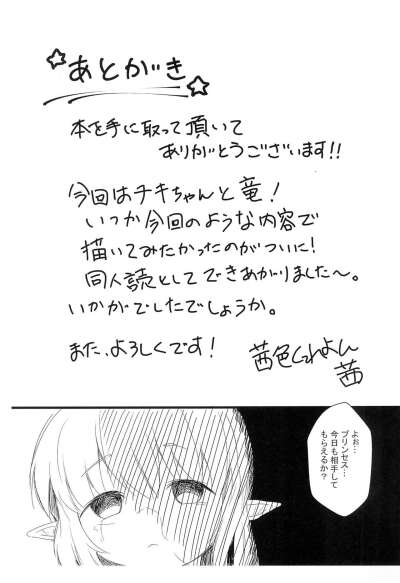 あとがき
本を手に取って頂いて
ありがとうございます!!
今回はチキちゃんと竜!
いつか今回のような内容で
描いてみたかったのがついに!
同人読としてできあがりました〜。
いかがでしたでしょうか。
また、よろしくです!
茜色くれよん
茜
よぉ…
プリンセス…
今日も相手して
もらえるか?